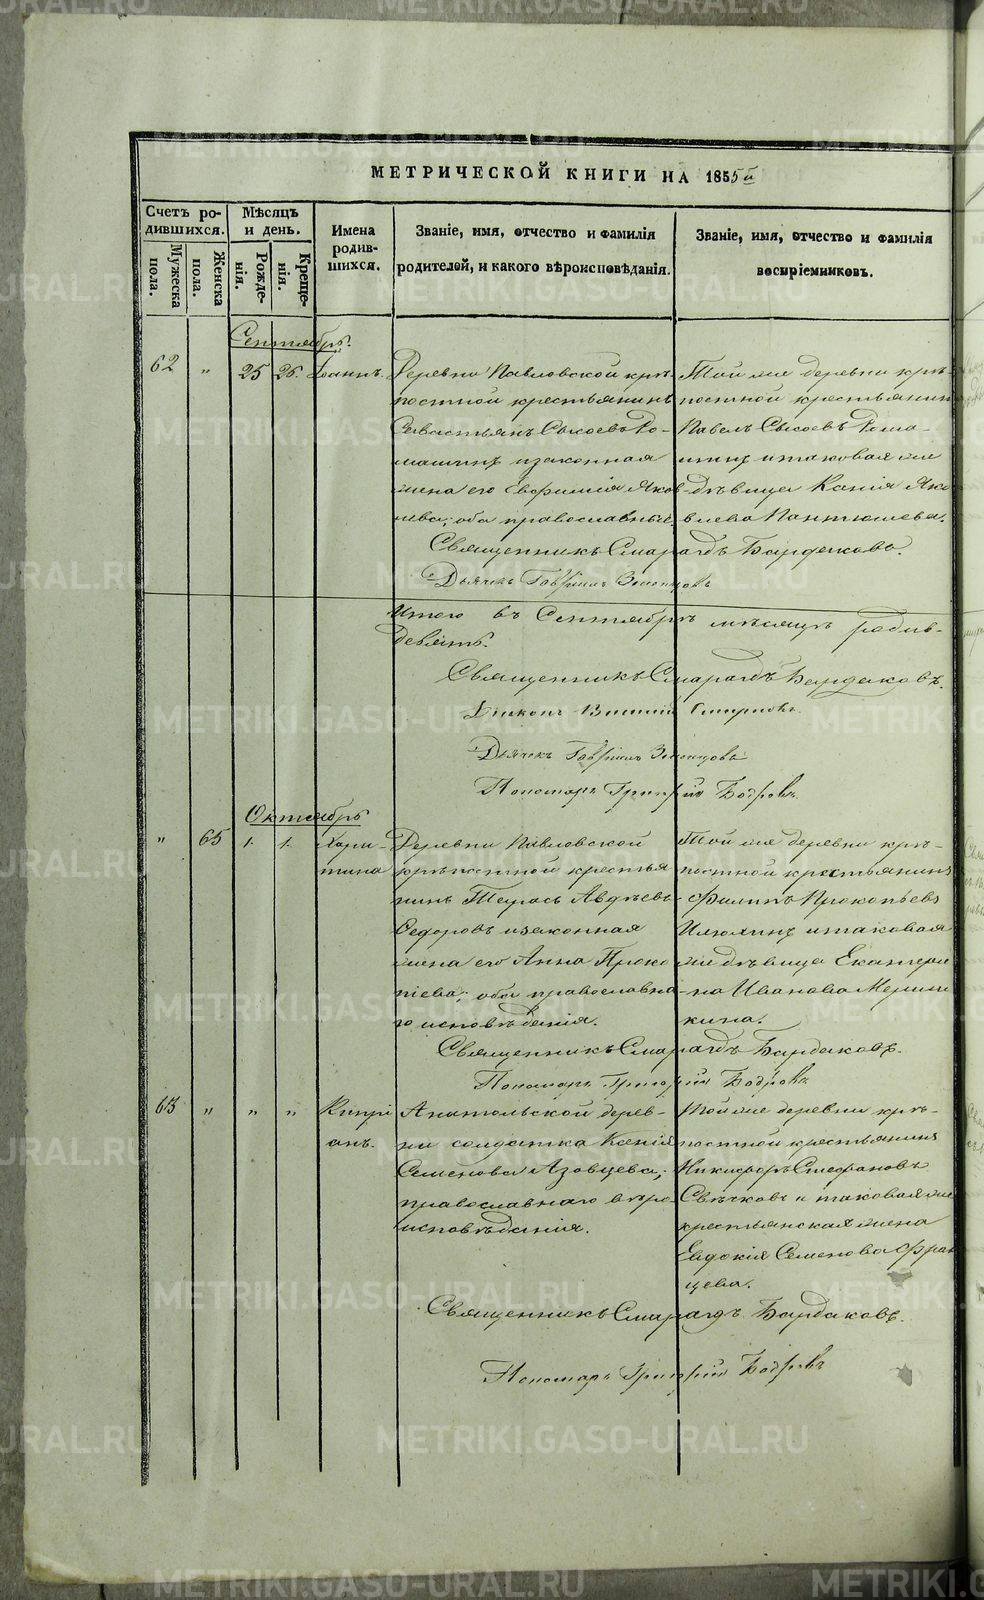 МЕТРИЧЕСКОЙ КНИГИ НА 1855й
Счетъ ро-
дившихся.
Мѣсяцъ
и день.
Имена
родив-
шихся.
Званіе, имя, отчество и фамилія
родителей, и какого вѣроисповѣданія.
Званіе, имя, отчество и фамилія
воспріемниковъ.
Мужеска
пола.
Женска
пола.
Рожде-
нія.
Креще-
нія.
Сентябрь.
62 " 25 26. Іоаннъ.
Деревни Павловской крѣ-
постной крестьянинъ
Севастьянъ Сысоевъ Ро-
машинъ изаконная
жена его Евфимія Яков-
лева, оба православные.
Той же деревни крѣ-
постной крестьянинъ
Павелъ Сысоевъ Рома-
шинъ итаковая же
дѣвица Ксенія Яко
влева Пантюшева.
Священникъ Смарагдъ Бардаковъ.
Дьячекъ Гавріилъ
Итого въ Сентябрѣ мѣсяцѣ родив-
девять.
Священникъ Смарагдъ Бардаковъ.
Діаконъ Смирновъ
Дьячекъ Гавріилъ
Пономарь Григорій Бобровъ
Октябрь
" 65 1. 1. Хари-
тина
Деревни Павловской
крѣпостной крестья
нинъ Тарасъ Авдѣевъ
Ѳедоровъ изаконная
жена его Анна Проко
піева, оба православна
го исповѣданія.
Той же деревни крѣ-
постной крестьянинъ
Филипъ Прокопьевъ
Илюшинъ итаковая
же дѣвица Екатери
на Иванова
кина.
Священникъ Смарагдъ Бардаковъ.
Пономарь Григорій Бобровъ
63 " " " Кипрі
анъ.
Анатольской дерев-
ни солдатка Ксенія
Семенова Азовцева,
православнаго вѣро
исповѣданія.
Той же деревни крѣ-
постной крестьянинъ
Никифоръ Стефановъ
Свѣчковъ и таковая же
крестьянская жена
Евдокія Семенова Фран
цева.
Священникъ Смарагдъ Бардаковъ.
Пономарь Григорій Бобровъ
METRIKI.GASO-URAL.RU